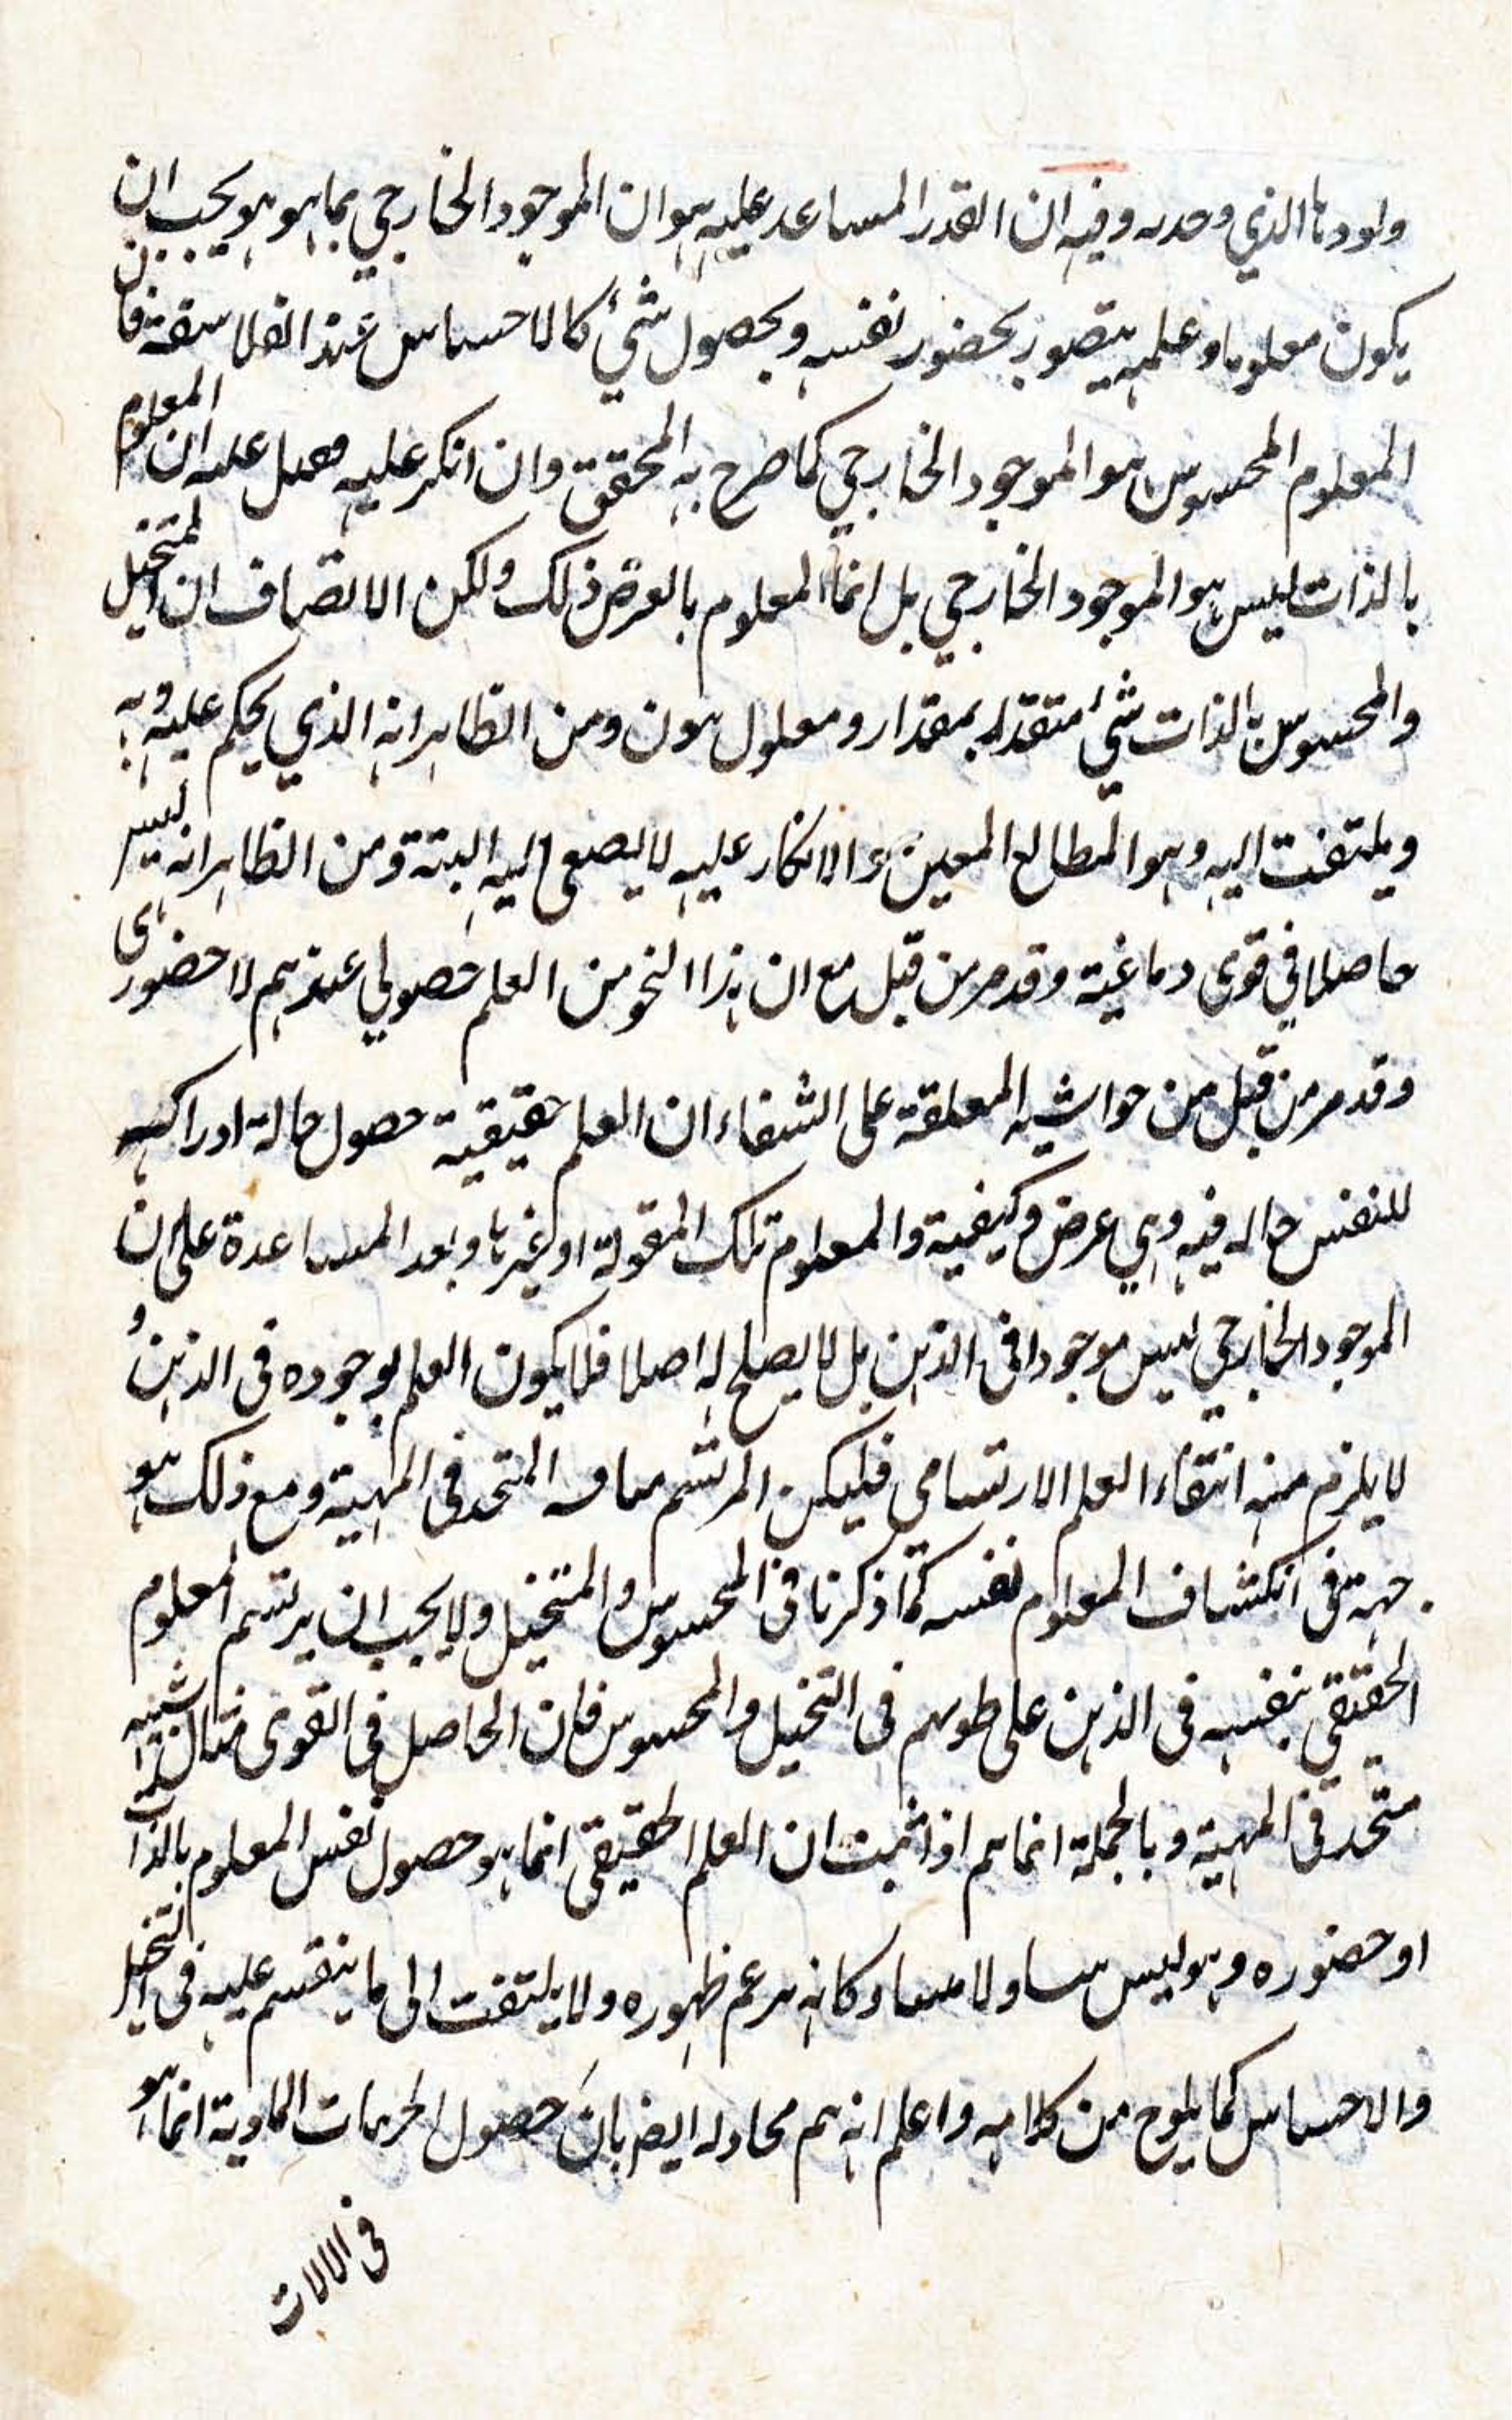 الذي وحده وفيه ان القدر المساعد عليه هو ان الموجود الخارجي بما هو هو يجب ان
يكون معلوما وعلمه يتصور بحضور نفسه وبحصول شئ كالاحساس عند الفلاسفة فان
المعلوم المحسوس هو الموجود الخارجي كما صرح به المحقق وان انكر عليه ان المعلوم
بالذات ليس هو الموجود الخارجي بل انما المعلوم بالعرض ذلك ولكن الانصاف ان المتخيل
والمحسوس بالذات شئ متقدر بمقدار و ومن الظاهر انه الذي يحكم عليه وبه
ويلتفت اليه وهو المطابع المعين والانكار عليه لا يصغى اليه البتة ومن الظاهر انه ليس
حاصلا في قوى دماغية وقد مر من قبل مع ان هذا النحو من العلم حصولي عندهم لا حضوري
وقد مر من قبل من حواشيه المعلقة على الشفاء ان العلم حقيقية حصول حالة ادراكيه
للنفس حاله فيه وهي عرض وكيفية والمعلوم تلك المقولة او غيرها وبعد المساعدة على ان
الموجود الخارجي ليس موجودا في الذهن بل لا يصلح له اصلا فلا يكون العلم بوجوده في الذهن و
لا يلزم منه انتفاء العلم الارتسامي فليكن المرتسم المتحد في المهية ومع ذلك هو
جهة في انكشاف المعلوم نفسه كما ذكرنا في المحسوس والمتخيل ولا يجب ان يرتسم المعلوم
الحقيقي بنفسه في الذهن على طورهم في التخيل والمحسوس فان الحاصل في القوى مثال شبيه
متحد في المهية وبالجملة انما تم اذا ثبت ان العلم الحقيقي انما هو حصول نفس المعلوم بالذات
او حضوره وهو ليس ولا وكانه ظهوره ولا يلتفت الى ما ينقسم عليه في التخيل
والاحساس كما يلوح من كلامه واعلم انه ايضر بان حصول المادية انما هو
في الالات